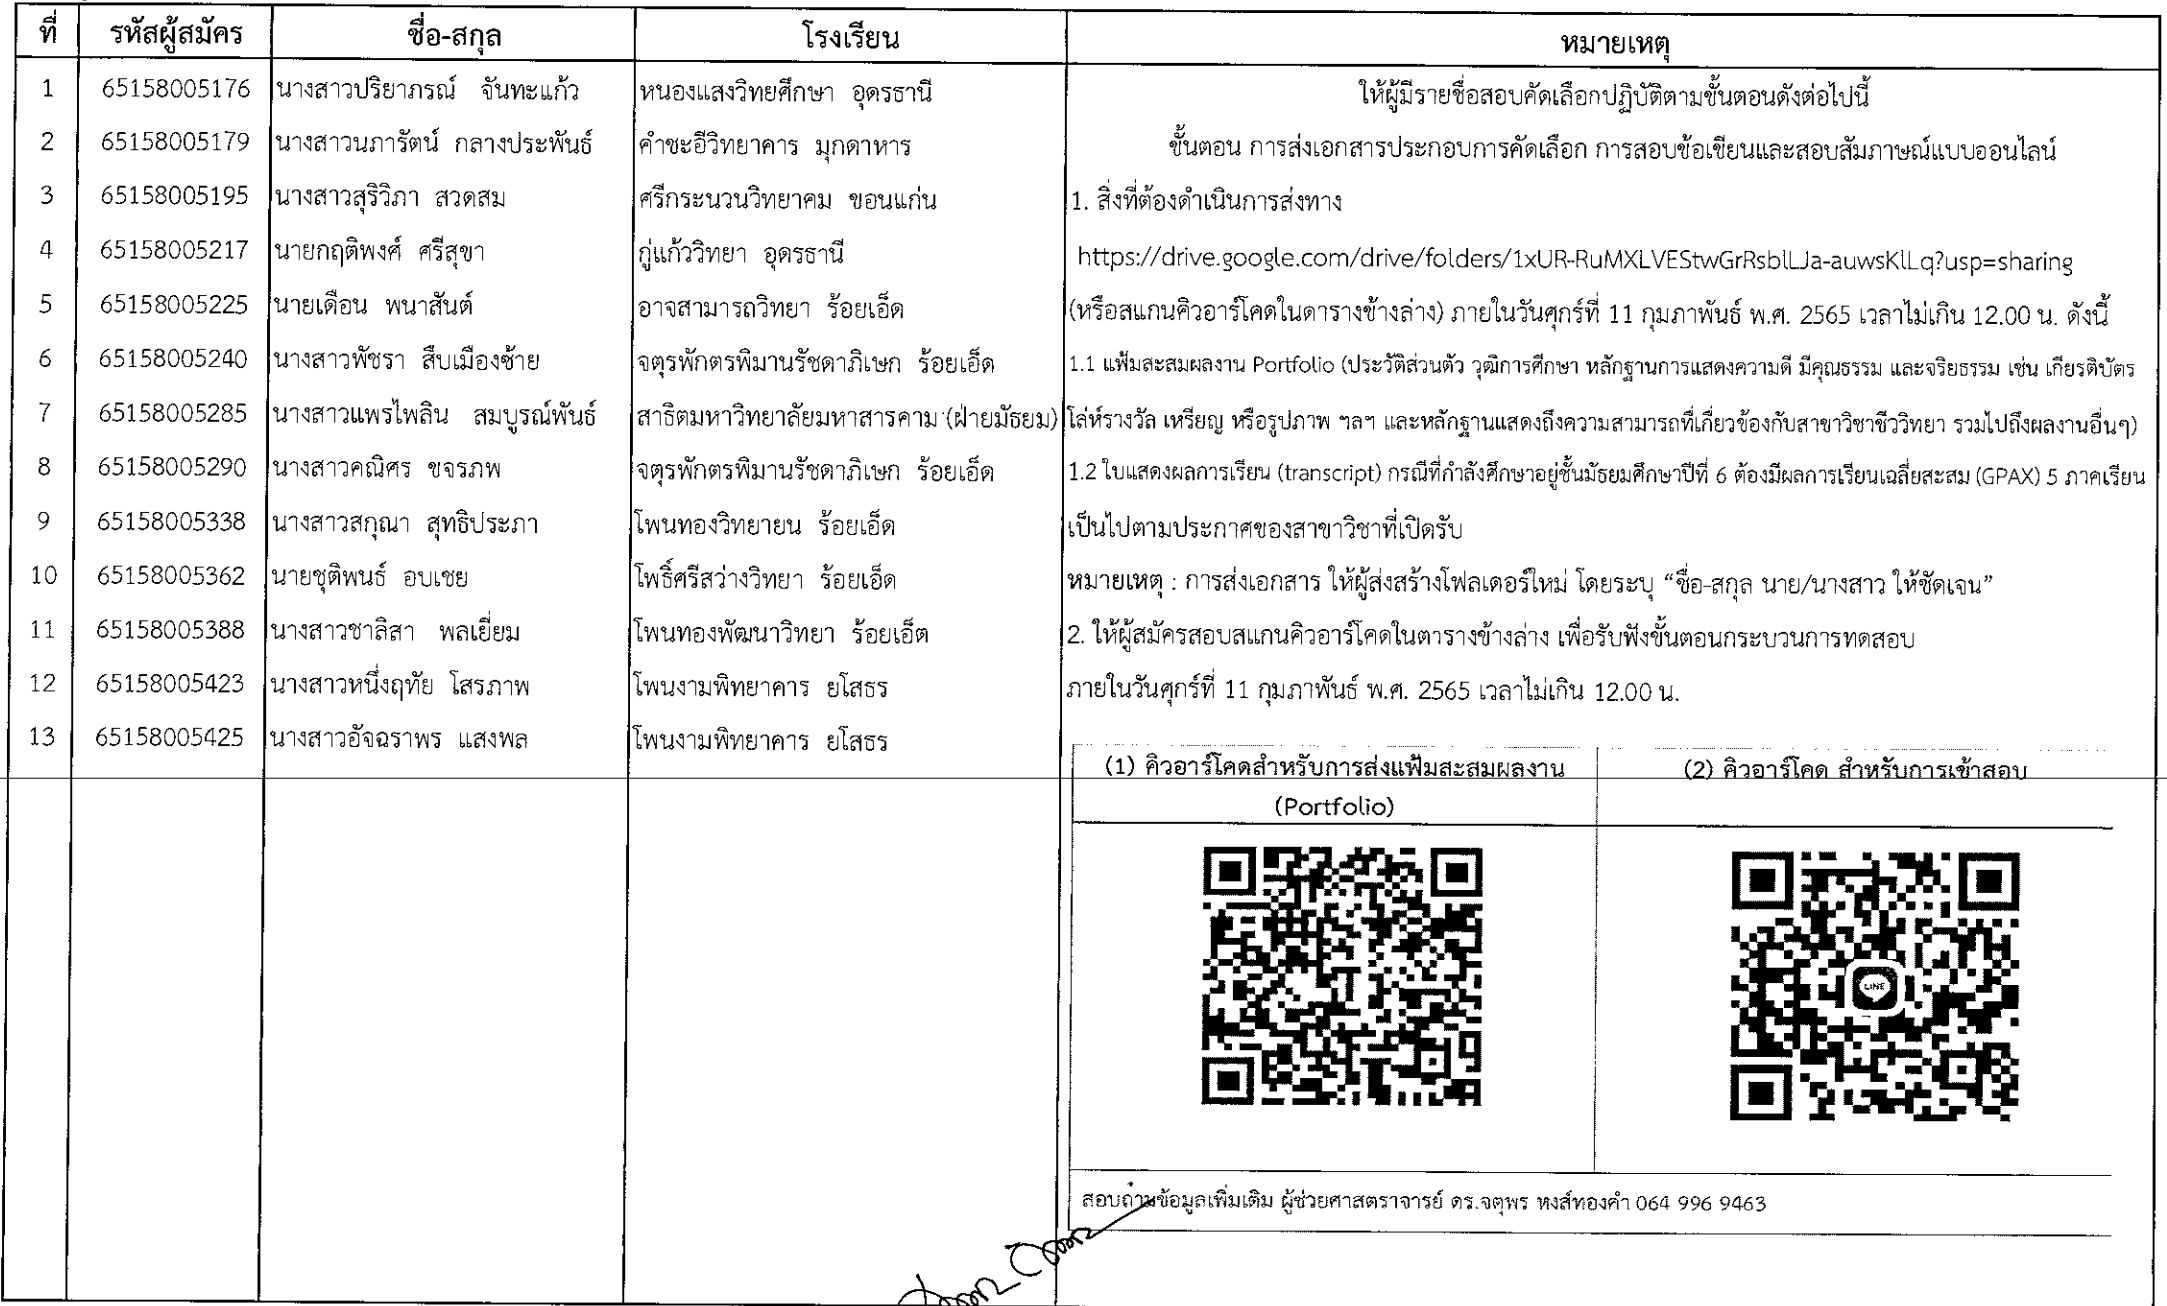 ที่ รหัสผู้สมัคร ชื่อ-สกุล โรงเรียน หมายเหตุ
1 65158005176 นางสาวปริยาภรณ์ จันทะแก้ว หนองแสงวิทยศึกษา อุดรธานี
2 65158005179 นางสาวนภารัตน์ กลางประพันธ์ คำชะอีวิทยาคาร มุกดาหาร
3 65158005195 นางสาวสุริวิภา สวดสม ศรีกระนวนวิทยาคม ขอนแก่น
4 65158005217 นายกฤติพงศ์ ศรีสุขา กู่แก้ววิทยา อุดรธานี
5 65158005225 นายเดือน พนาสันต์ อาจสามารถวิทยา ร้อยเอ็ด
6 65158005240 นางสาวพัชรา สืบเมืองซ้าย จตุรพักตรพิมานรัชดาภิเษก ร้อยเอ็ด
7 65158005285 นางสาวแพรไพลิน สมบูรณ์พันธ์ สาธิตมหาวิทยาลัยมหาสารคาม (ฝ่ายมัธยม)
8 65158005290 นางสาวคณิศร ขจรภพ จตุรพักตรพิมานรัชดาภิเษก ร้อยเอ็ด
9 65158005338 นางสาวสกุณา สุทธิประภา โพนทองวิทยายน ร้อยเอ็ด
10 65158005362 นายชุติพนธ์ อบเชย โพธิ์ศรีสว่างวิทยา ร้อยเอ็ด
11 65158005388 นางสาวชาลิสา พลเยี่ยม โพนทองพัฒนาวิทยา ร้อยเอ็ด
12 65158005423 นางสาวหนึ่งฤทัย โสรภาพ โพนงามพิทยาคาร ยโสธร
13 65158005425 นางสาวอัจฉราพร แสงพล โพนงามพิทยาคาร ยโสธร
ให้ผู้มีรายชื่อสอบคัดเลือกปฏิบัติตามขั้นตอนดังต่อไปนี้
ขั้นตอน การส่งเอกสารประกอบการคัดเลือก การสอบข้อเขียนและสอบสัมภาษณ์แบบออนไลน์
1. สิ่งที่ต้องดำเนินการส่งทาง
https://drive.google.com/drive/folders/1xUR-RuMXLVEStwGrRsblLJa-auwsKlLq?usp=sharing
(หรือสแกนคิวอาร์โคดในตารางข้างล่าง) ภายในวันศุกร์ที่ 11 กุมภาพันธ์ พ.ศ. 2565 เวลาไม่เกิน 12.00 น. ดังนี้
1.1 แฟ้มสะสมผลงาน Portfolio (ประวัติส่วนตัว วุฒิการศึกษา หลักฐานการแสดงความดี มีคุณธรรม และจริยธรรม เช่น เกียรติบัตร
โล่ห์รางวัล เหรียญ หรือรูปภาพ ฯลฯ และหลักฐานแสดงถึงความสามารถที่เกี่ยวข้องกับสาขาวิชาชีววิทยา รวมไปถึงผลงานอื่นๆ)
1.2 ใบแสดงผลการเรียน (transcript) กรณีที่กำลังศึกษาอยู่ชั้นมัธยมศึกษาปีที่ 6 ต้องมีผลการเรียนเฉลี่ยสะสม (GPAX) 5 ภาคเรียน
เป็นไปตามประกาศของสาขาวิชาที่เปิดรับ
หมายเหตุ : การส่งเอกสาร ให้ผู้ส่งสร้างโฟลเดอร์ใหม่ โดยระบุ “ชื่อ-สกุล นาย/นางสาว ให้ชัดเจน”
2. ให้ผู้สมัครสอบสแกนคิวอาร์โคดในตารางข้างล่าง เพื่อรับฟังขั้นตอนกระบวนการทดสอบ
ภายในวันศุกร์ที่ 11 กุมภาพันธ์ พ.ศ. 2565 เวลาไม่เกิน 12.00 น.
(1) คิวอาร์โคดสำหรับการส่งแฟ้มสะสมผลงาน
(Portfolio)
(2) คิวอาร์โคด สำหรับการเข้าสอบ
LINE
สอบถามข้อมูลเพิ่มเติม ผู้ช่วยศาสตราจารย์ ดร.จตุพร หงส์ทองคำ 064 996 9463